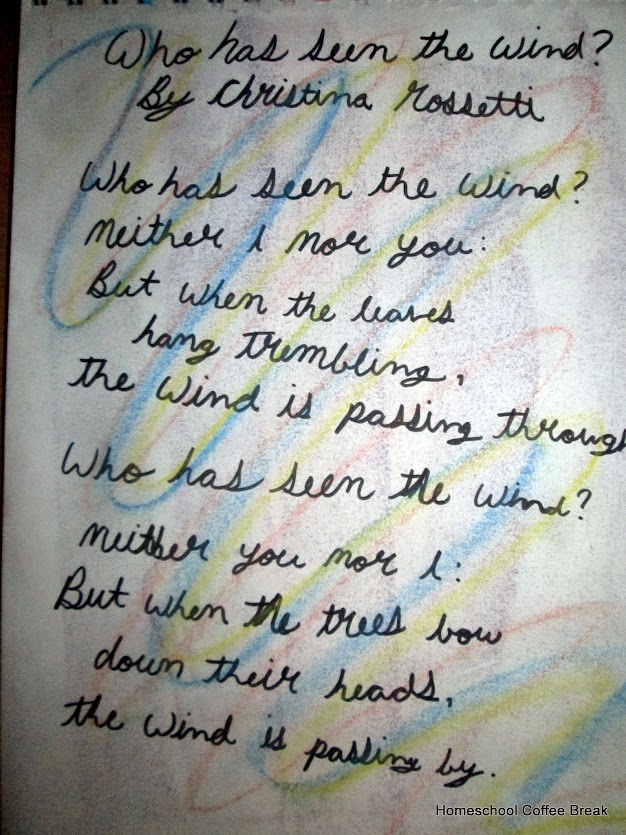 Who has seen the wind?
By Christina Rossetti
Who has seen the wind?
neither I nor you:
But when the leaves
hang trembling,
the wind is passing through
Who has seen the wind?
neither you nor I:
But when the trees bow
down their heads,
the wind is passing by.
Homeschool Coffee Break